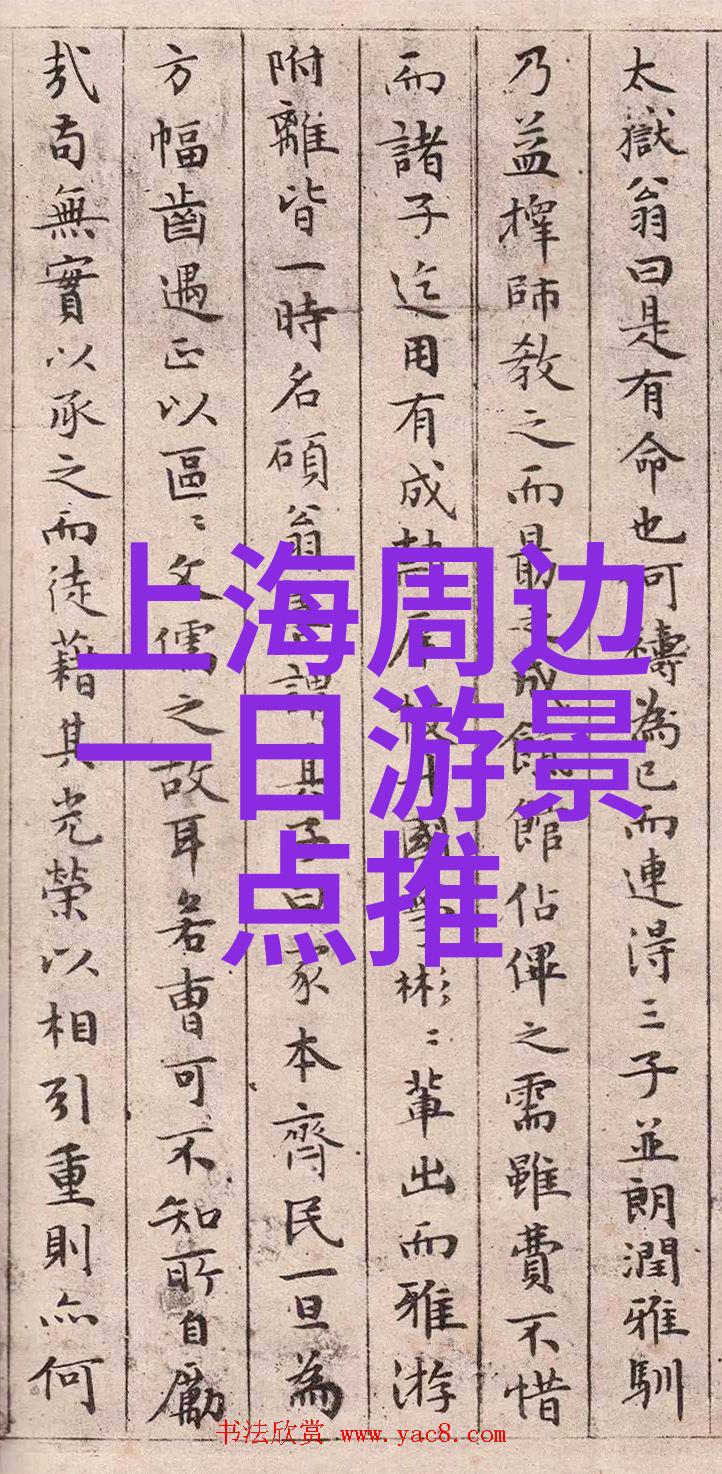 太嶽翁曰是有命也可禱為已而連得三子並朗潤雅馴
乃益擇師教之而最館佔之需雖費不惜
而諸子迄用有成國彬〻輩出而雅游
附離皆一時名碩翁謂其子曰家本齊民一旦為
方幅齒遇正以區〻文儒之故耳若曹可不知所自勵
哉苟無實以承之而徒藉其光榮以相引重則亦何
上海周边
一日游景
点推
书法欣赏 www.yac8.com